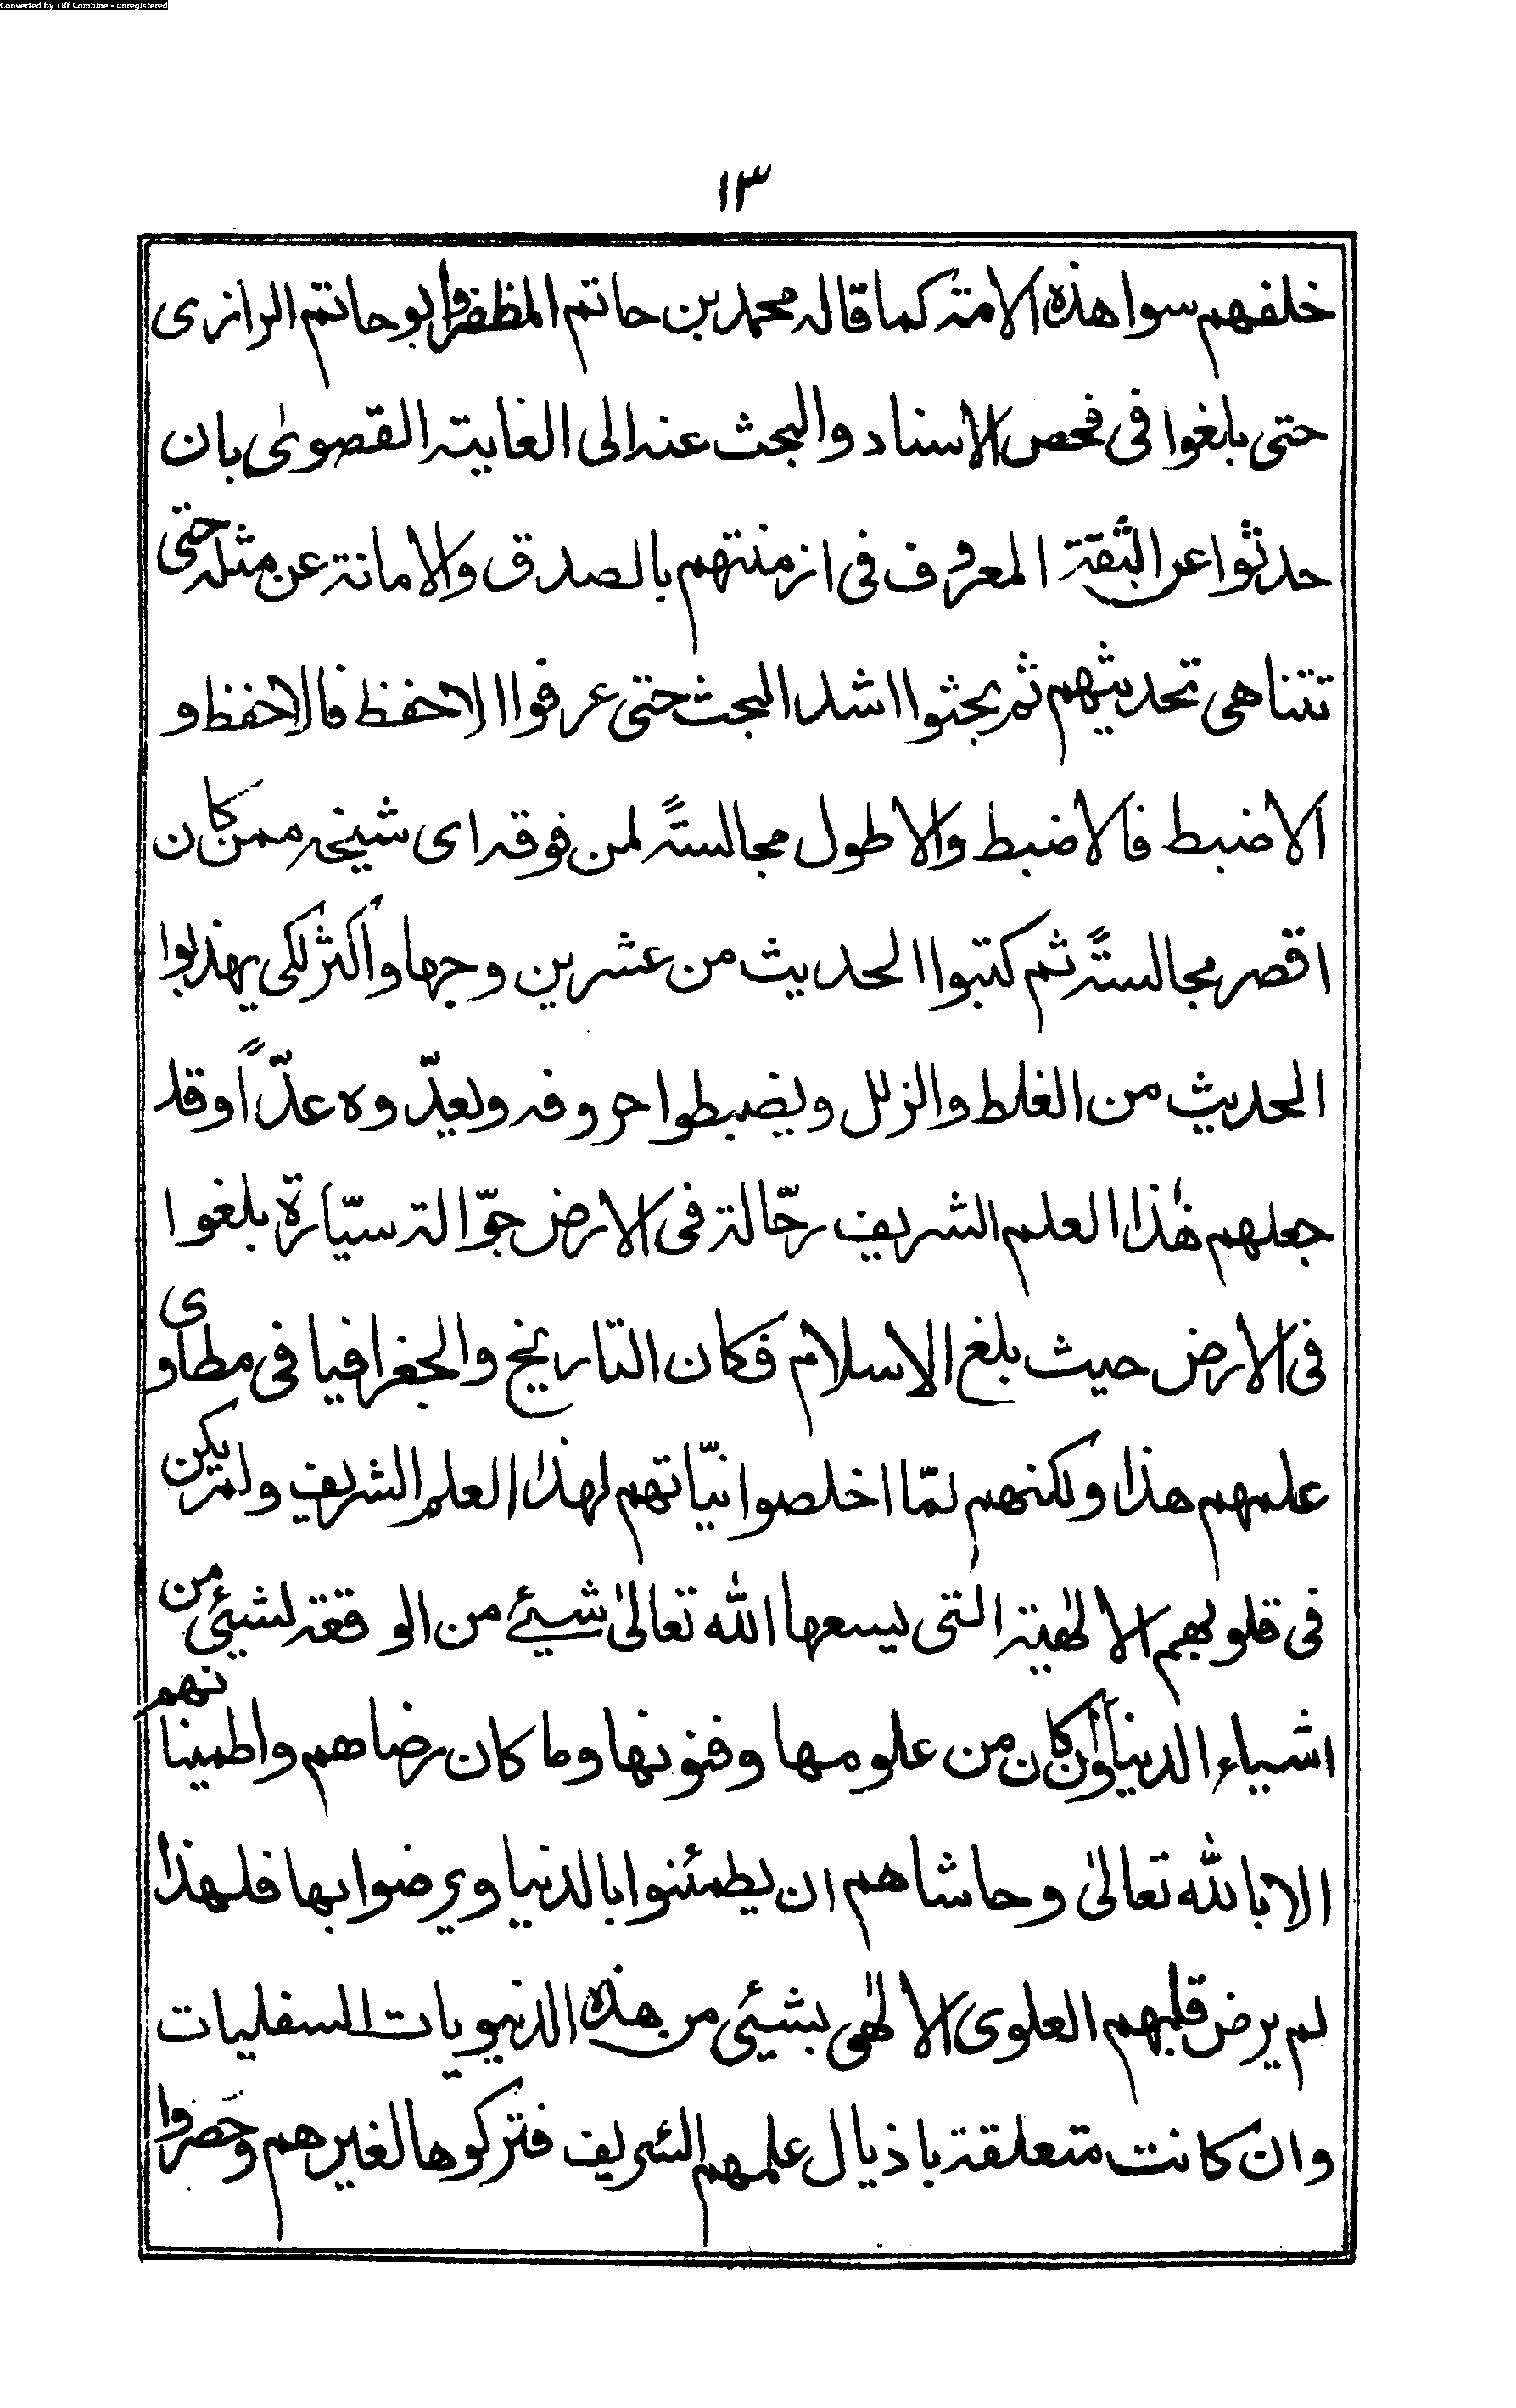 Converted by Tiff Combine - unregistered
١٣
خلفهم سوا هذه الامة كما قاله محمد بن حاتم المظفر وابو حاتم الرازى
حتى بلغوا فى فحص الاسناد والبحث عنه الى الغاية القصوىٰ بان
حدثوا عن الثقة المعروف فى ازمنتهم بالصدق والامانة عن مثله حتى
تتناهى تحديثهم ثم بحثوا اشد البحث حتى عرفوا الاحفظ فالاحفظ و
الاضبط فالاضبط والاطول مجالسةً لمن فوقه اى شيخه ممن كان
اقصر مجالسةً ثم كتبوا الحديث من عشرين وجها واكثر لكى يهذبوا
الحديث من الغلط والزلل ويضبطوا حروفه ويعدّوه عدّاً وقد
جعلهم هٰذا العلم الشريف رحّالة فى الارض جوّالة سيّارة بلغوا
فى الارض حيث بلغ الاسلام فكان التاريخ والجغرافيا فى مطاوى
علمهم هذا ولكنهم لمّا اخلصوا نيّاتهم لهذا العلم الشريف ولم يكن
فى قلوبهم الالٰهية التى يسعها الله تعالىٰ شيئ من الوقعة لشيئ من
اشياء الدنيا وان كان من علومها وفنونها وما كان رضاهم واطمينانهم
الا بالله تعالىٰ وحاشاهم ان يطمئنوا بالدنيا ويرضوا بها فلهذا
لم يرض قلبهم العلوى الالٰهى بشيئ من هذه الدنيويات السفليات
وان كانت متعلقة باذيال علمهم الشريف فتركوها لغيرهم وحَصروا